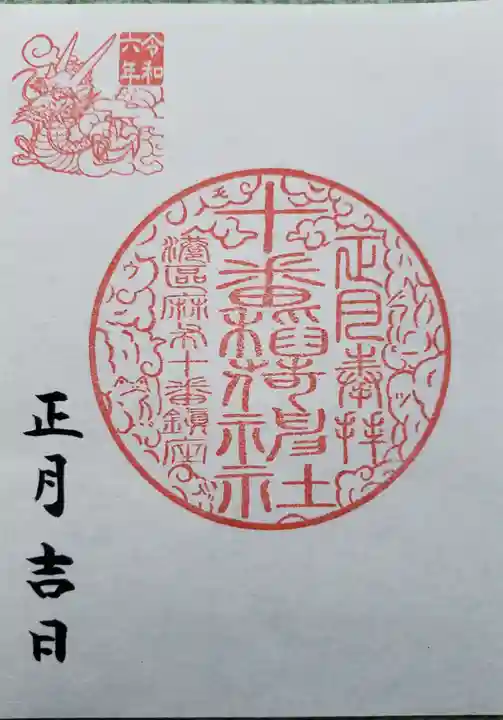 令和
六年
正月奉拝
十番稲荷神社
港區麻布十番鎮座
正月吉日